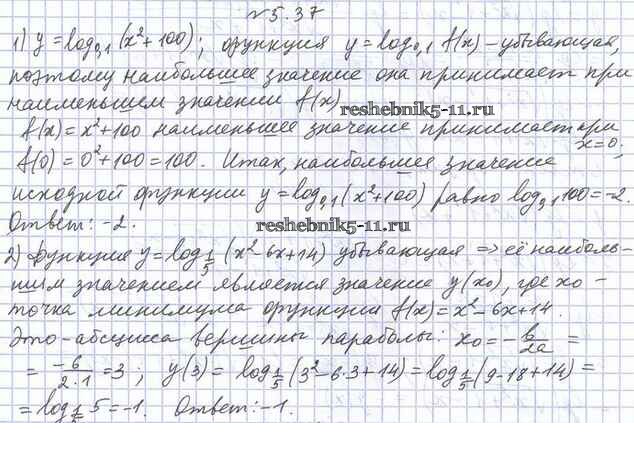 №5.37
1) y=log₀,₁(x²+100); функция y=log₀,₁ f(x) – убывающая,
поэтому наибольшее значение она принимает при
наименьшем значении f(x)
reshebnik5-11.ru
f(x)=x²+100 наименьшее значение принимает при x=0:
f(0)=0²+100=100. Итак, наибольшее значение
исходной функции y=log₀,₁(x²+100) равно log₀,₁100=-2.
Ответ: -2.
reshebnik5-11.ru
2) Функция y=log_{1/5}(x²-6x+14) убывающая ⇒ её наиболь-
шим значением является значение y(x₀), где x₀ –
точка минимума функции f(x)=x²-6x+14.
Это – абсцисса вершины параболы: x₀=-b/2a =
= -6/2·1 =3; y(3)=log_{1/5}(3²-6·3+14)=log_{1/5}(9-18+14)=
=log_{1/5}5=-1. Ответ: -1.